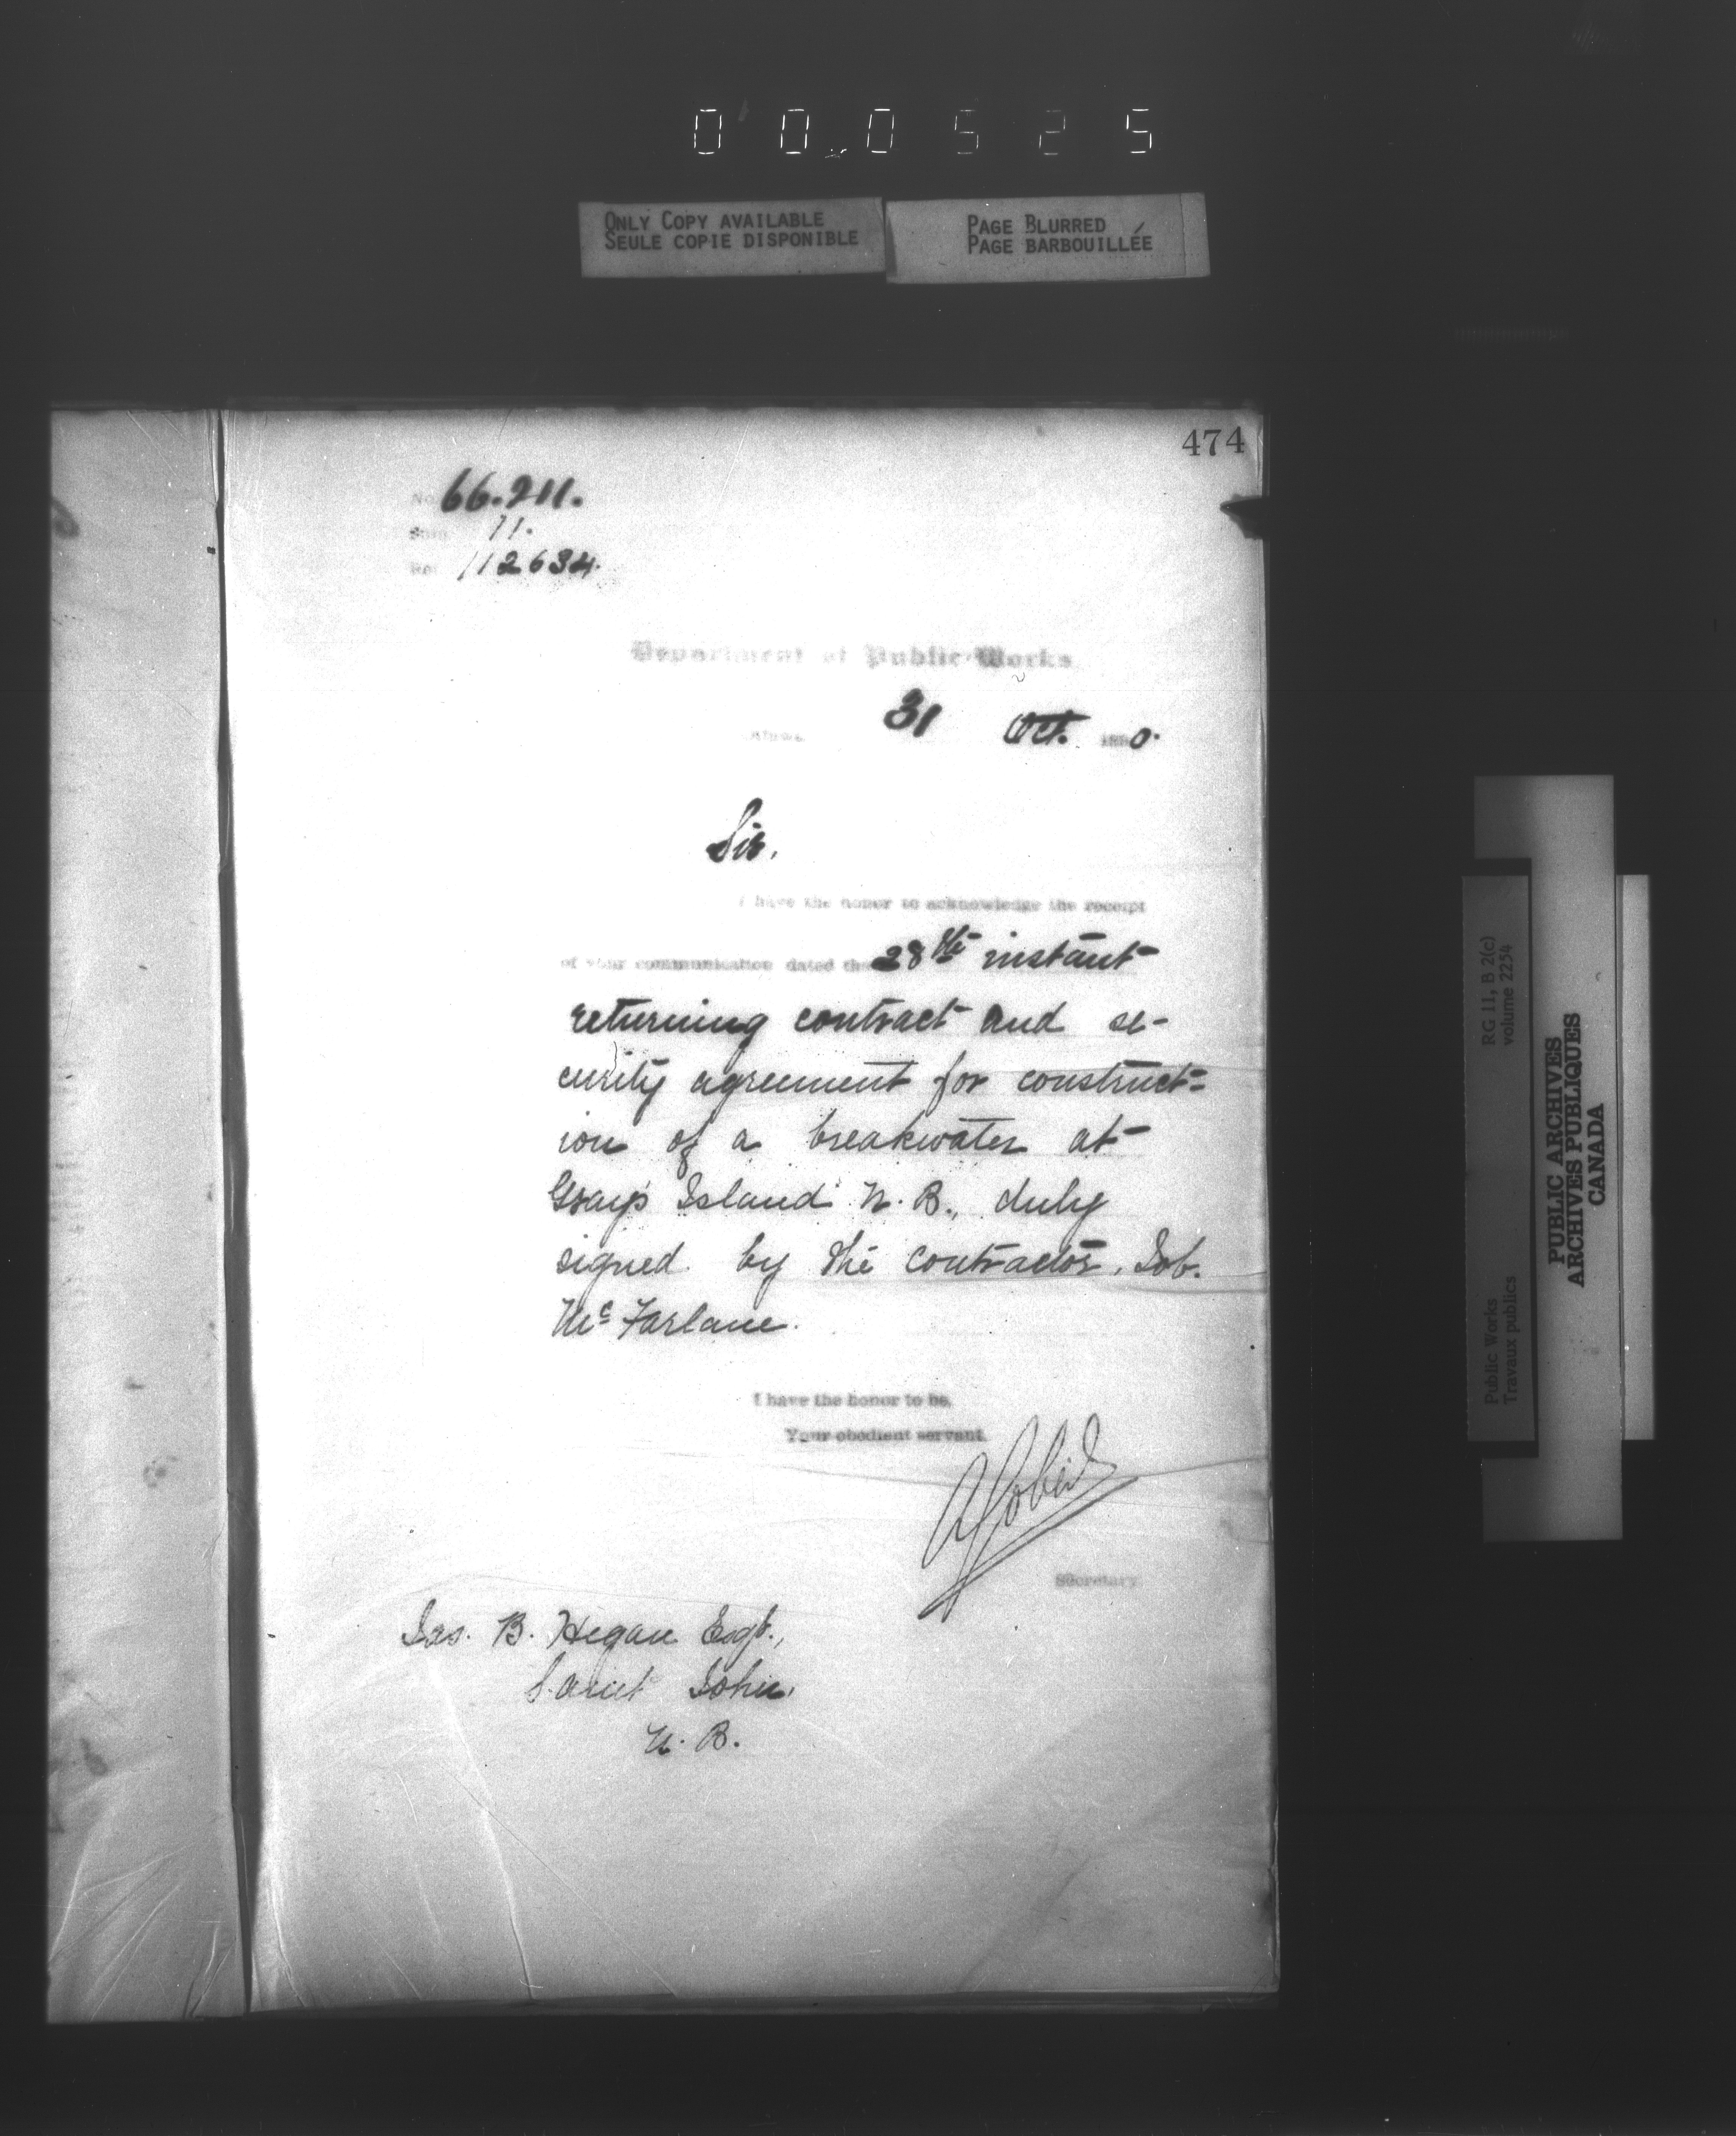 000525
ONLY COPY AVAILABLE
SEULE COPIE DISPONIBLE
PAGE BLURRED
PAGE BARBOUILLÉE
474
No 66.911.
Subj 11.
Ref 112634.
Department of Public Works
Ottawa 31 Oct. 1890.
Sir,
I have the honor to acknowledge the receipt
of your communication dated the 28th instant
returning contract and se-
curity agreement for construct=
ion of a breakwater at
Grays Island N. B., duly
signed by the contractor, Job.
Mc Farlane.
I have the honor to be,
Your obedient servant,
A Gobeil
Secretary
Jas. B. Hegan Esqr.,
Saint John,
N. B.
RG 11, B 2(c)
volume 2254
Public Works
Travaux publics
PUBLIC ARCHIVES
ARCHIVES PUBLIQUES
CANADA